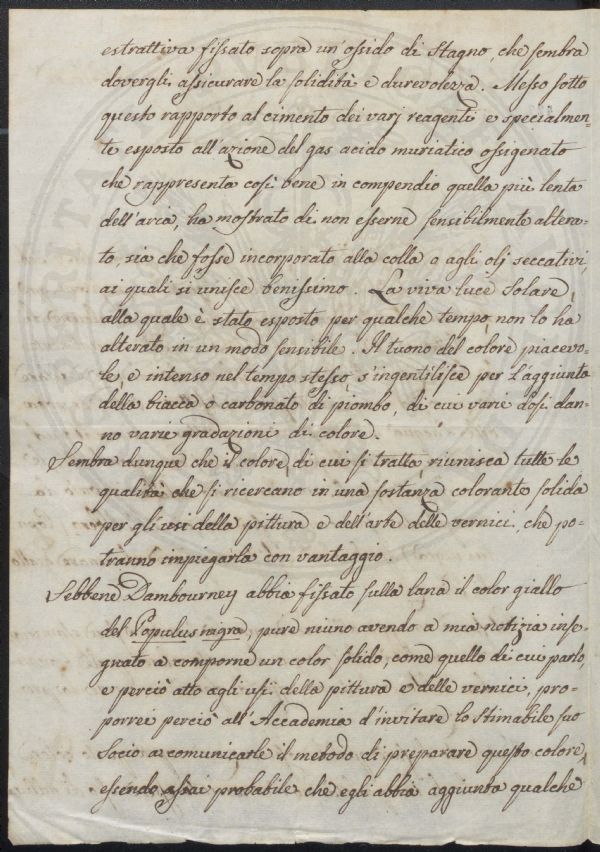 estrattiva fissato sopra un'ossido di Stagno, che sembra
dovergli assicurare la solidità e durevolezza. Messo sotto
questo rapporto al cimento dei varj reagenti e specialmen=
te esposto all'azione del gas acido muriatico ossigenato
che rappresenta così bene in compendio quella più lenta
dell'aria, ha mostrato di non esserne sensibilmente altera-
to, sia che fosse incorporato alla colla o agli olj seccativi,
ai quali si unisce benissimo. La viva luce Solare,
alla quale è stato esposto per qualche tempo, non lo ha
alterato in un modo sensibile. Il tuono del colore piacevo-
le, e intenso nel tempo stesso, s'ingentilisce per l'aggiunta
della biacca o carbonato di piombo, di cui varie dosi dan-
no varie gradazioni di colore.
Sembra dunque che il colore, di cui si tratta, riunisca tutte le
qualità che si ricercano in una sostanza colorante solida
per gli usi della pittura e dell'arte delle vernici, che po=
tranno impiegarla con vantaggio.
Sebbene Dambourney abbia fissato sulla lana il color giallo
del Populus nigra, pure niuno avendo a mia notizia inse-
gnato a comporne un color solido, come quello di cui parlo,
e perciò atto agli usi della pittura e delle vernici, pro-
porrei perciò all'Accademia d'invitare lo stimabile suo
Socio a comunicarle il metodo di preparare questo colore,
essendo assai probabile che egli abbia aggiunta qualche